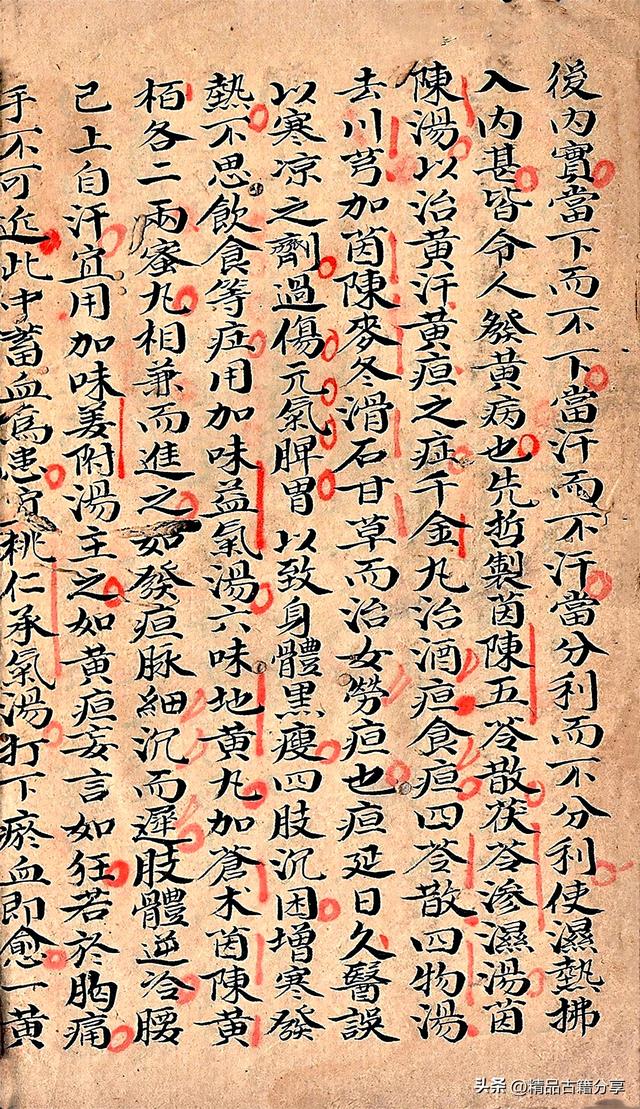 後內實當下而不下當汗而不汗當分利而不分利使濕熱拂
入內甚皆令人發黃病也先哲製茵陳五苓散茯苓滲濕湯茵
陳湯以治黃汗黃疸之症千金丸治酒疸食疸四苓散四物湯
去川芎加茵陳麥冬滑石甘草而治女勞疸也疸延日久醫誤
以寒凉之劑過傷元氣脾胃以致身體黑瘦四肢沉困增寒發
熱不思飲食等症用加味益氣湯六味地黃丸加蒼术茵陳黃
栢各二兩蜜丸相兼而進之如發疸脉細沉而遲肢體逆冷腰
已上自汗宜用加味姜附湯主之如黃疸妄言如狂若於胸痛
手不可近此中蓄血爲患宜桃仁承氣湯打下瘀血即愈一黃
头条 @精品古籍分享